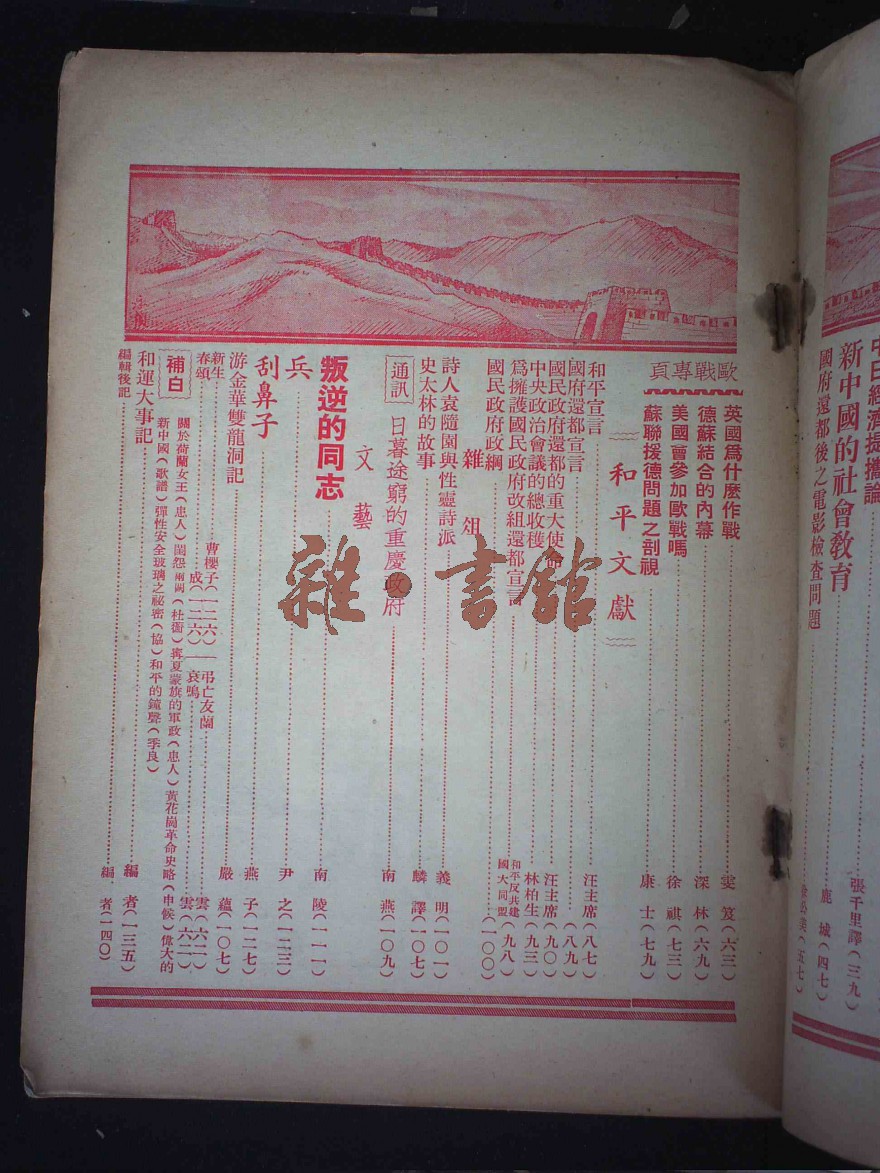 中日經濟提攜論
新中國的社會教育 張千里譯(三九)
國府還都後之電影檢查問題
鹿城(四七)
(五七)
歐戰專頁
英國爲什麽作戰 雯笈(六三)
德蘇結合的內幕 深林(六九)
美國會參加歐戰嗎 徐祺(七三)
蘇聯援德問題之剖視 康士(七九)
和平文獻
和平宣言 汪主席(八七)
國府還都宣言 (八九)
國民政府還都的重大使命 汪主席(九〇)
中央政治會議的總收穫 林柏生(九三)
爲擁護國民政府改組還都宣言 和平反共建國大同盟(九八)
國民政府政綱 (一〇〇)
雜俎
詩人袁隨園與性靈詩派 義明(一〇一)
史太林的故事 麟譯(一〇七)
通訊 日暮途窮的重慶政府 南燕(一〇九)
文藝
叛逆的同志 南陵(一一一)
兵 尹之(一二三)
刮鼻子 燕子(一二七)
游金華雙龍洞記 嚴蘊(一〇七)
新生 曹櫻子(一二六)—弔亡友蘭 雲(六二)
春頌 成(一二六)—哀鳴 雲(六二)
補白
關於荷蘭女王(忠人)閨怨兩闋(杜衡)寗夏蒙旗的軍政(忠人)黃花崗革命史略(申候)偉大的
新中國(歌譜)彈性安全玻璃之祕密(協)和平的鐘聲(季良)
和運大事記 編者(一三五)
編輯後記 編者(一四〇)
雜·書館